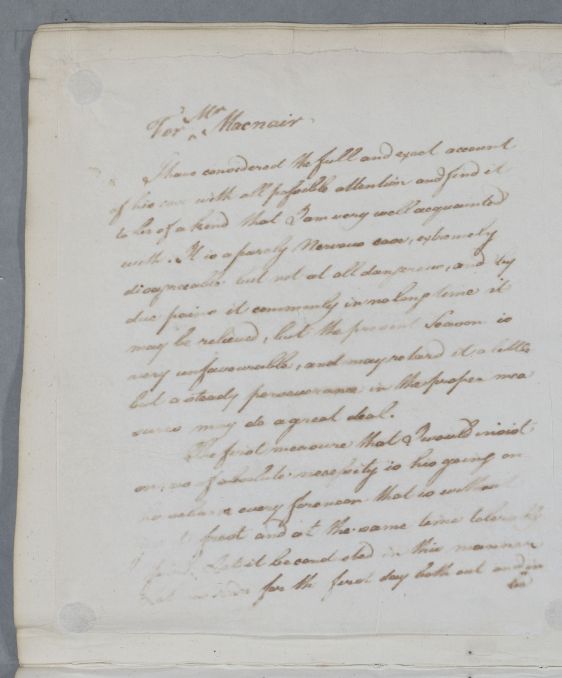 For Mr Macnair
I have considered the full and exact account
of his case with all possible attention and find it
to be of a kind that I am very well acquainted
with. It is a purely Nervous case, extremely
disagreeable but not at all dangerous, and by
due pains it commonly in no long time it
may be relieved, but the present Season is
very unfavourable, and may retard it a little
but a steady perseverance in the proper mea
sures may do a great deal.
The first measure that I would insist
on, as of absolute necessity is his going on
every forenoon that is without
frost and at the same time tolerably
Let it be conducted in this manner
Let for the first day both out and in